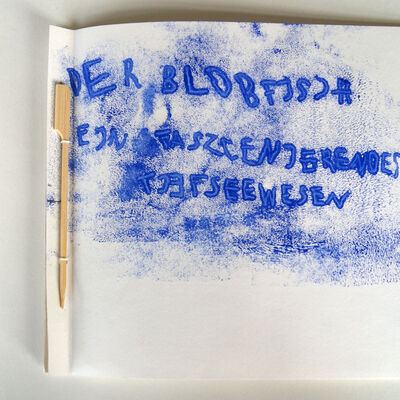 DER BLOBFISCH
EIN FASZCENIERENDES
TIEFSEEWESEN